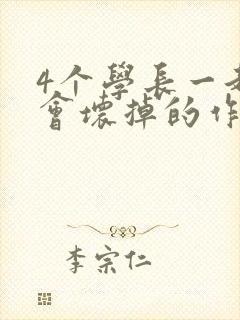 4个學長一
會壞掉的作
李宗仁